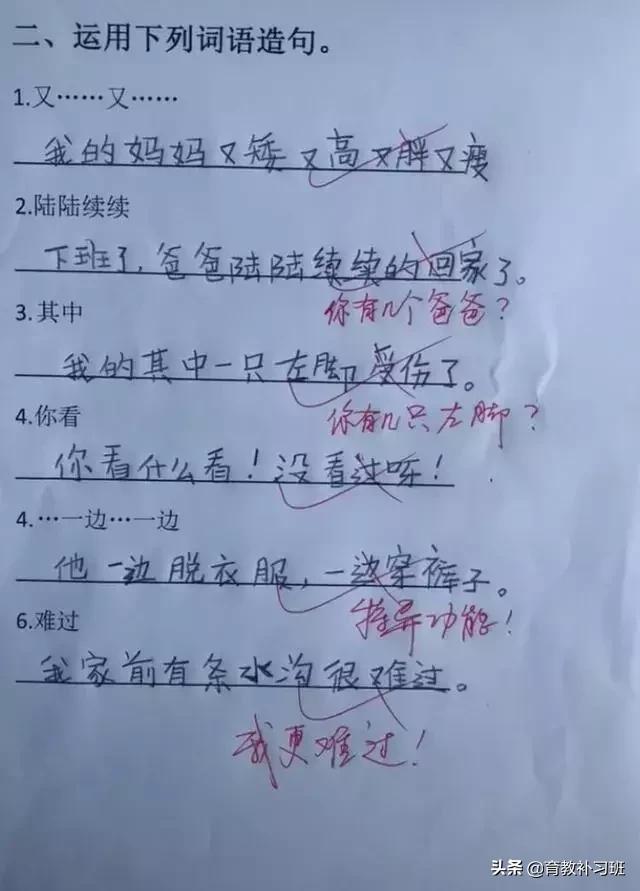 二、运用下列词语造句。
1.又……又……
我的妈妈又矮又高又胖又瘦
2.陆陆续续
下班了,爸爸陆陆续续的回家了。
你有几个爸爸?
3.其中
我的其中一只左脚受伤了。
你有几只左脚?
4.你看
你看什么看!没看过呀!
4.…一边…一边
他一边脱衣服,一边穿裤子。
特异功能!
6.难过
我家前有条水沟很难过。
我更难过!
头条 @育教补习班